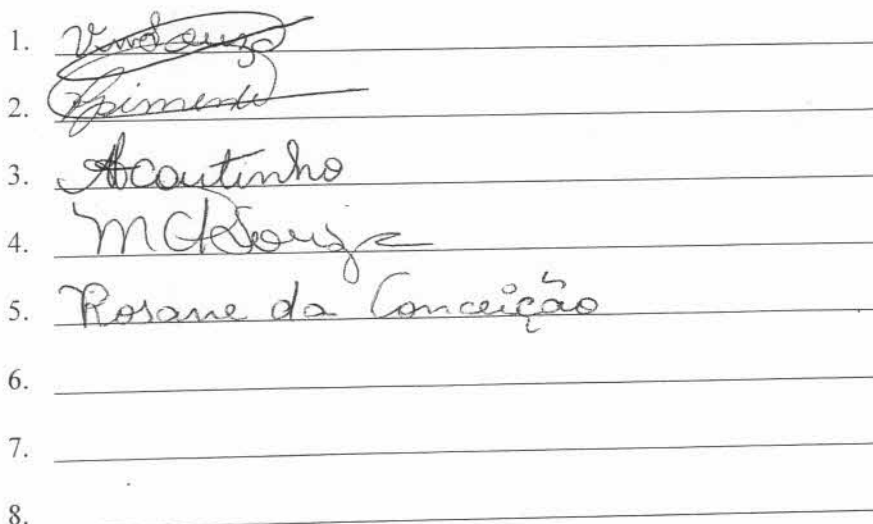 1. VmSouza
2. Pimentel
3. Acoutinho
4. MCRSouza
5. Rosane da Conceição
6.
7.
8.